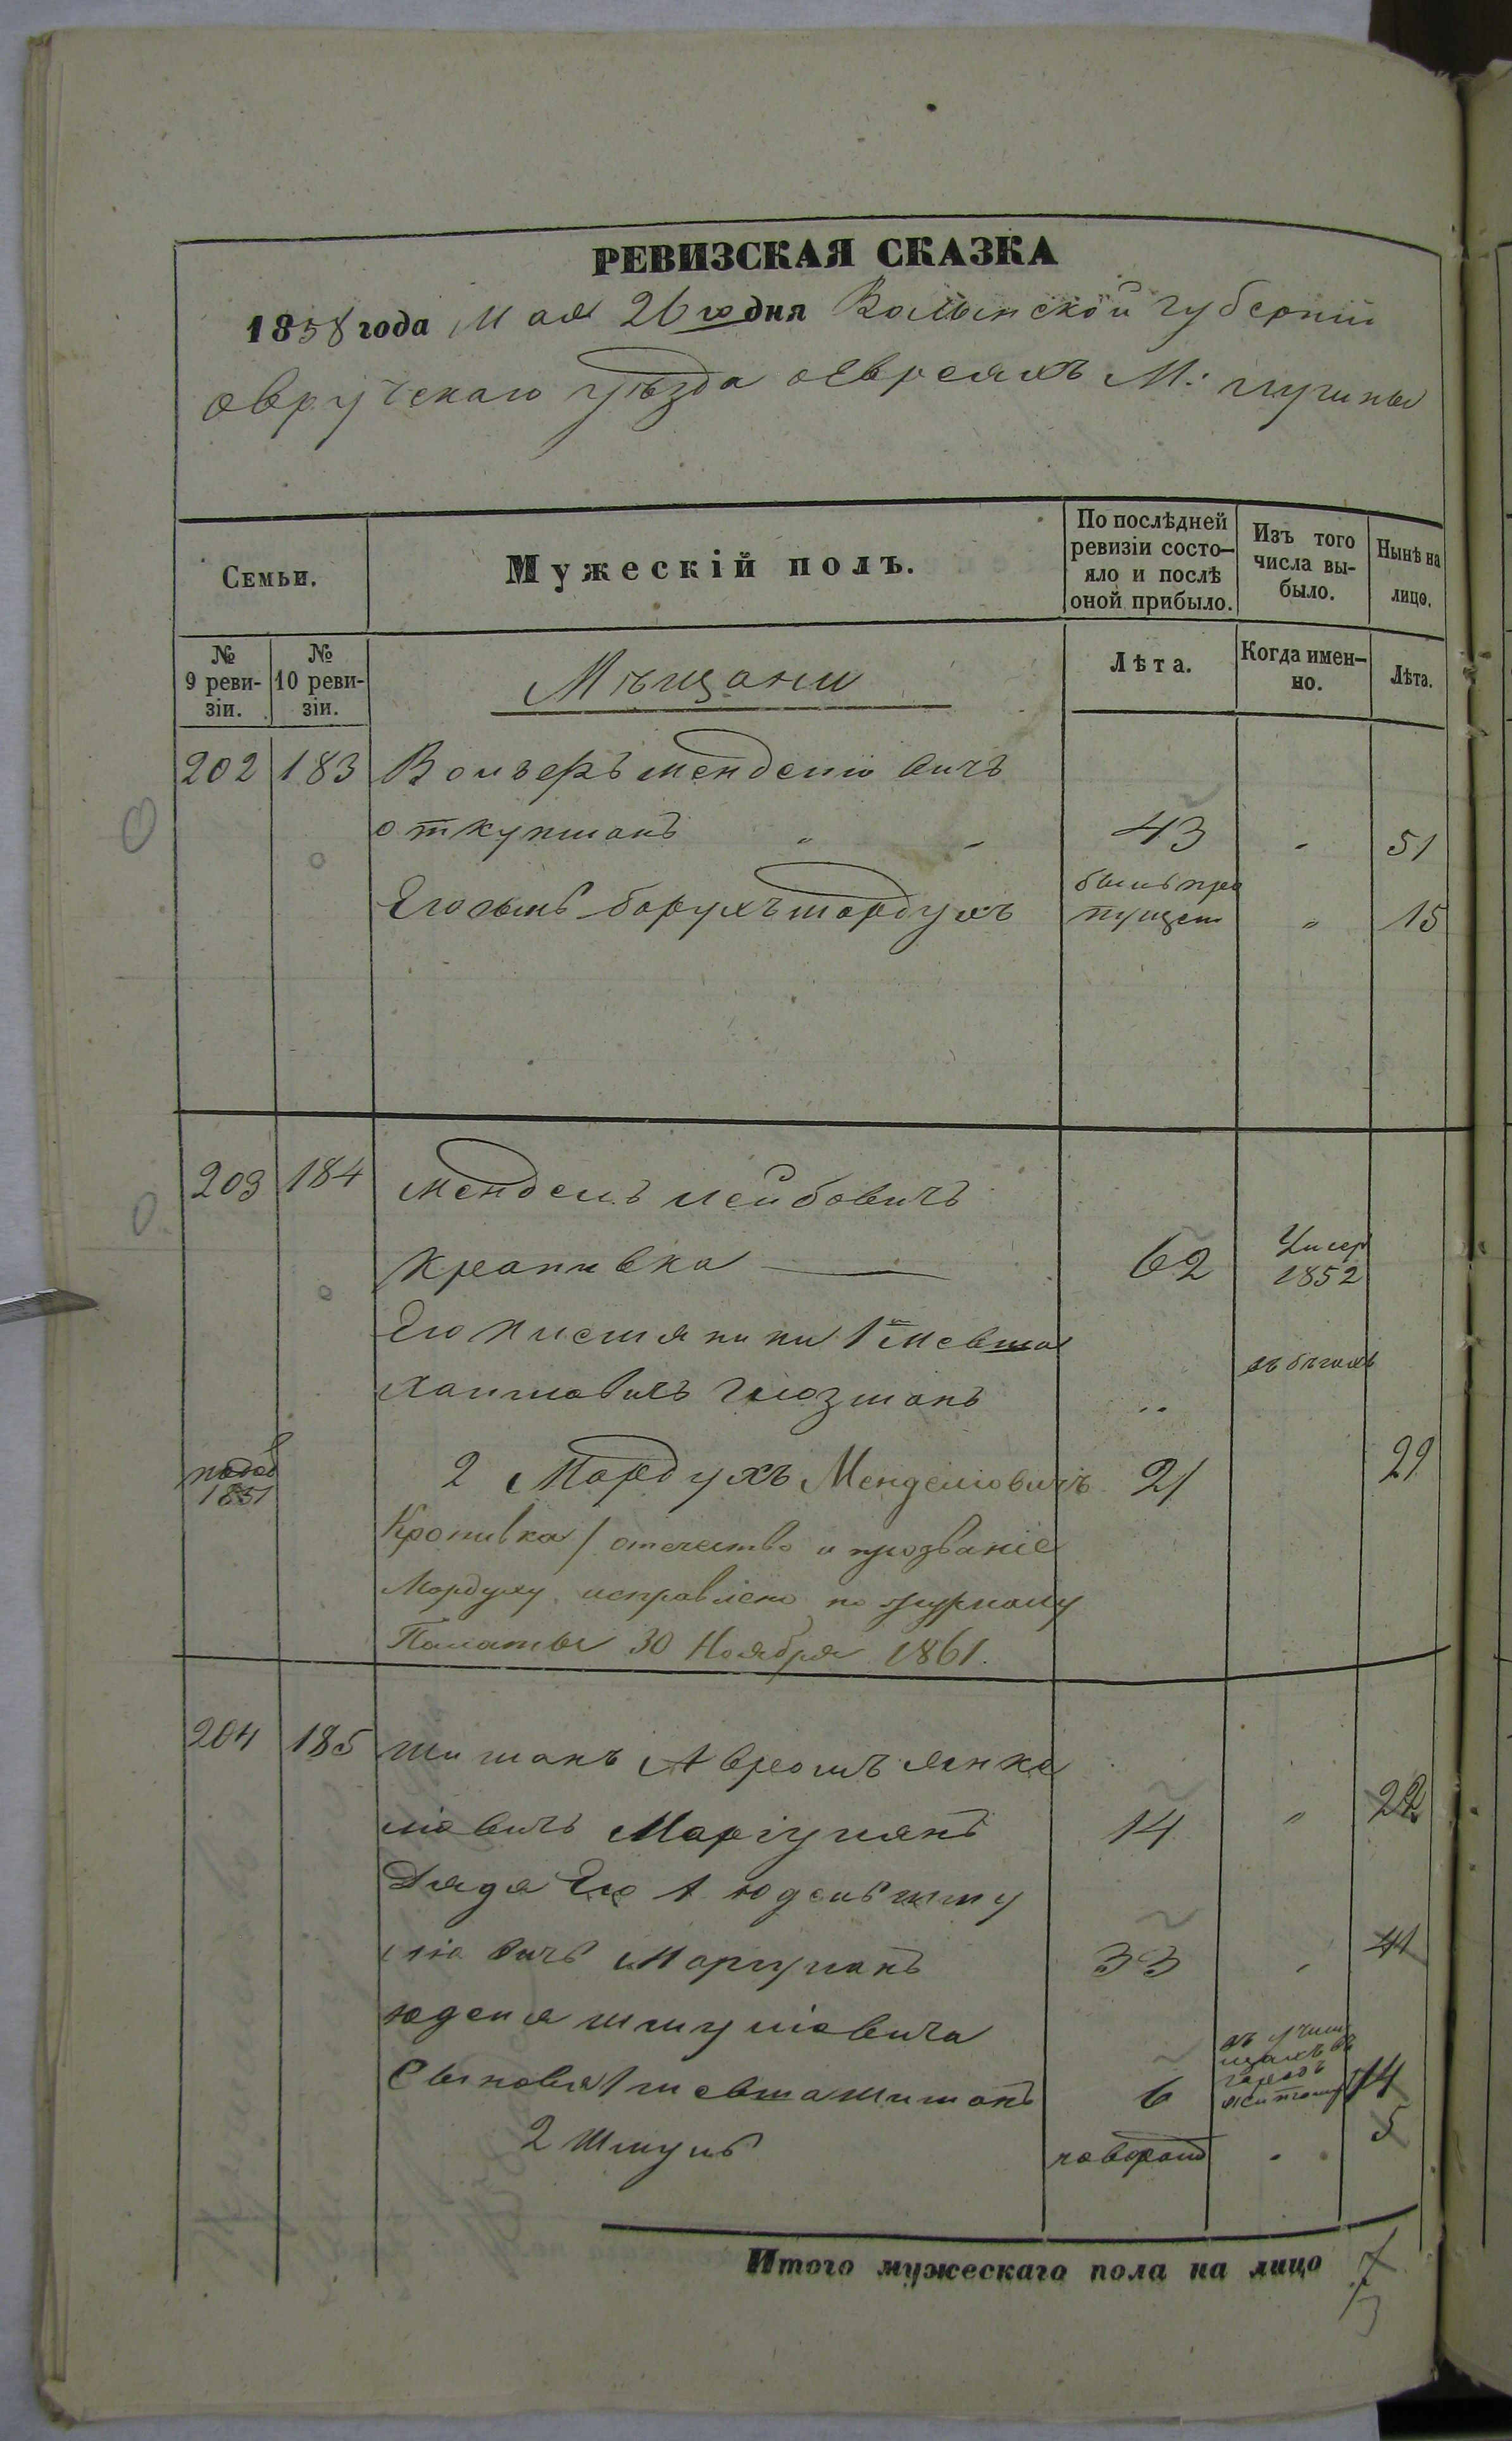 РЕВИЗСКАЯ СКАЗКА
1858 года Мая 26 го дня Волынской губерніи
Овручскаго уѣзда о Евреяхъ М: Лугины
Семьи.
Мужескій полъ.
По послѣдней ревизіи состо-яло и послѣ оной прибыло.
Изъ того числа вы-было.
Нынѣ на лицо.
№ 9 реви-зіи.
№ 10 реви-зіи.
Мѣщани
Лѣта.
Когда имен-но.
Лѣта.
202 183 Мендельовичъ
откупманъ " - 43 - 51
Его сынъ Борухъ Мордухъ былъ про пущен " 15
203 184 Мендель Лейбовичъ
Крапивка — 62 Умер 1852
Его племянники 1й Мевша въ бѣгахъ
Хаимовичъ Глозманъ ..
1851 2 Мордухъ Менделіовичъ 21 29
Кропивка / отечество и прозваніе
Мордуху исправлено по журналу
Палаты 30 Ноября 1861.
204 185 Шиманъ Авромъ Янке
ліовичъ Маргулянъ 14 " 22
Дядя Его 1 Юдель Шму
ліовичъ Маргулянъ 33 41
Юделя Шмуліовича
Сыновья 1 Мевша Шиманъ 6 14
2 Шмуль новорож - 5
Итого мужескаго пола на лицо 7